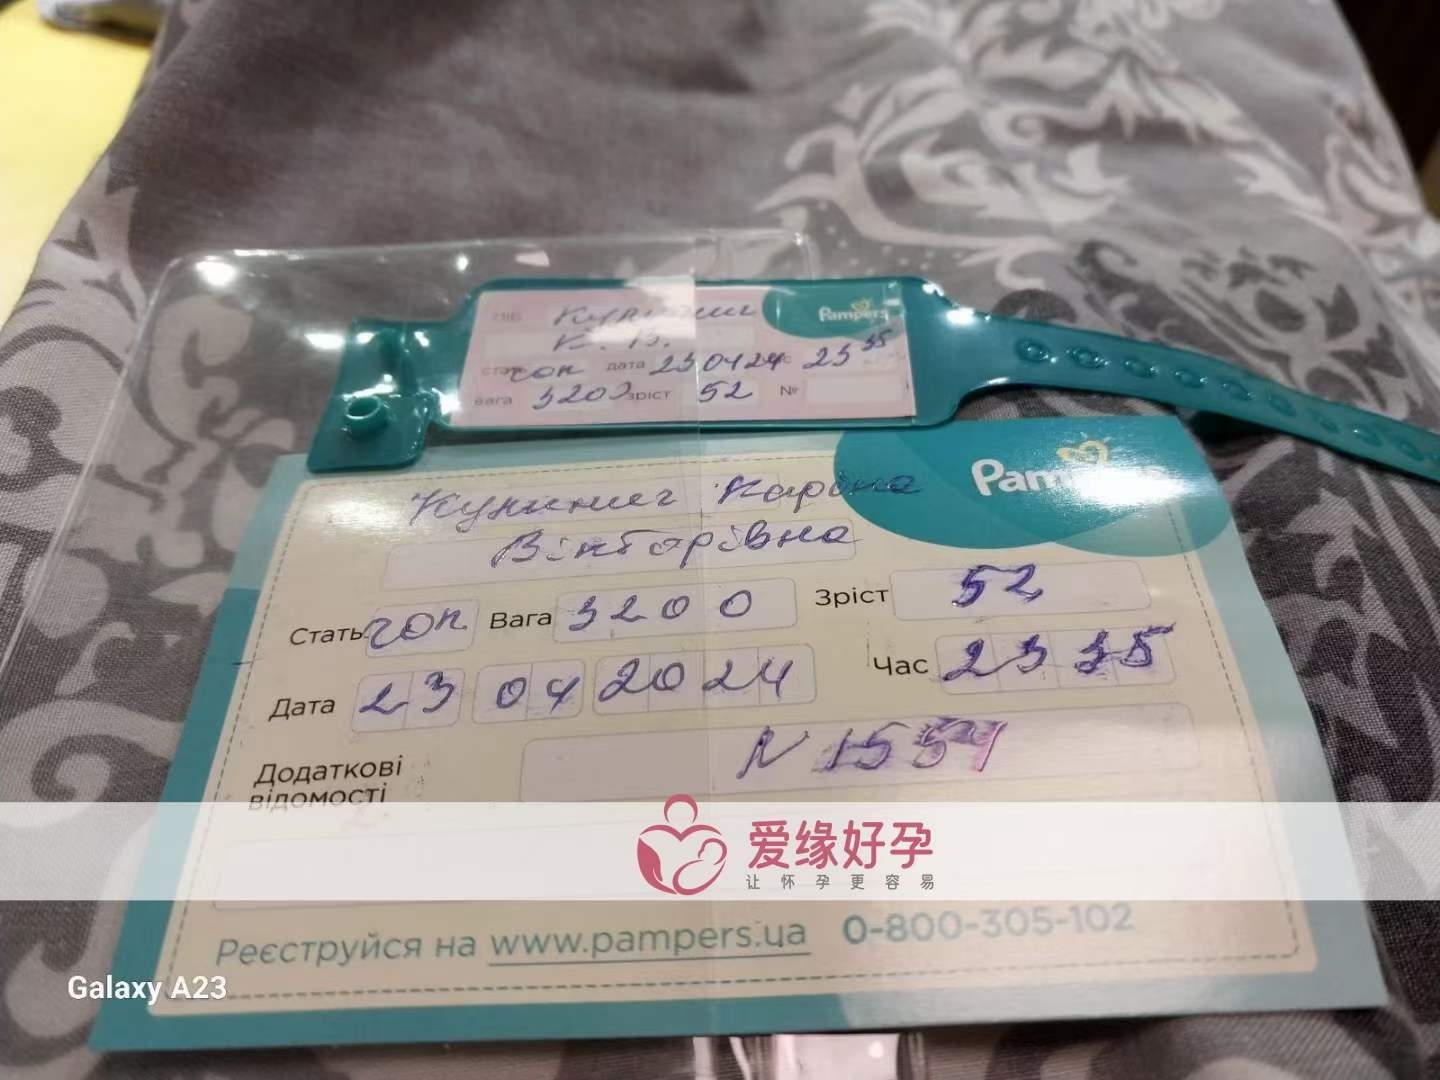 ПІБ
К. В.
Pampers
стать чол дата 230424 час 23 35
вага 3200 зріст 52 №
Pampers
Каріна
Вікторівна
Стать чол Вага 3200 Зріст 52
Дата 23 04 2024 Час 23 35
Додаткові
відомості
N 1554
爱缘好孕
让怀孕更容易
Реєструйся на www.pampers.ua 0-800-305-102
Galaxy A23